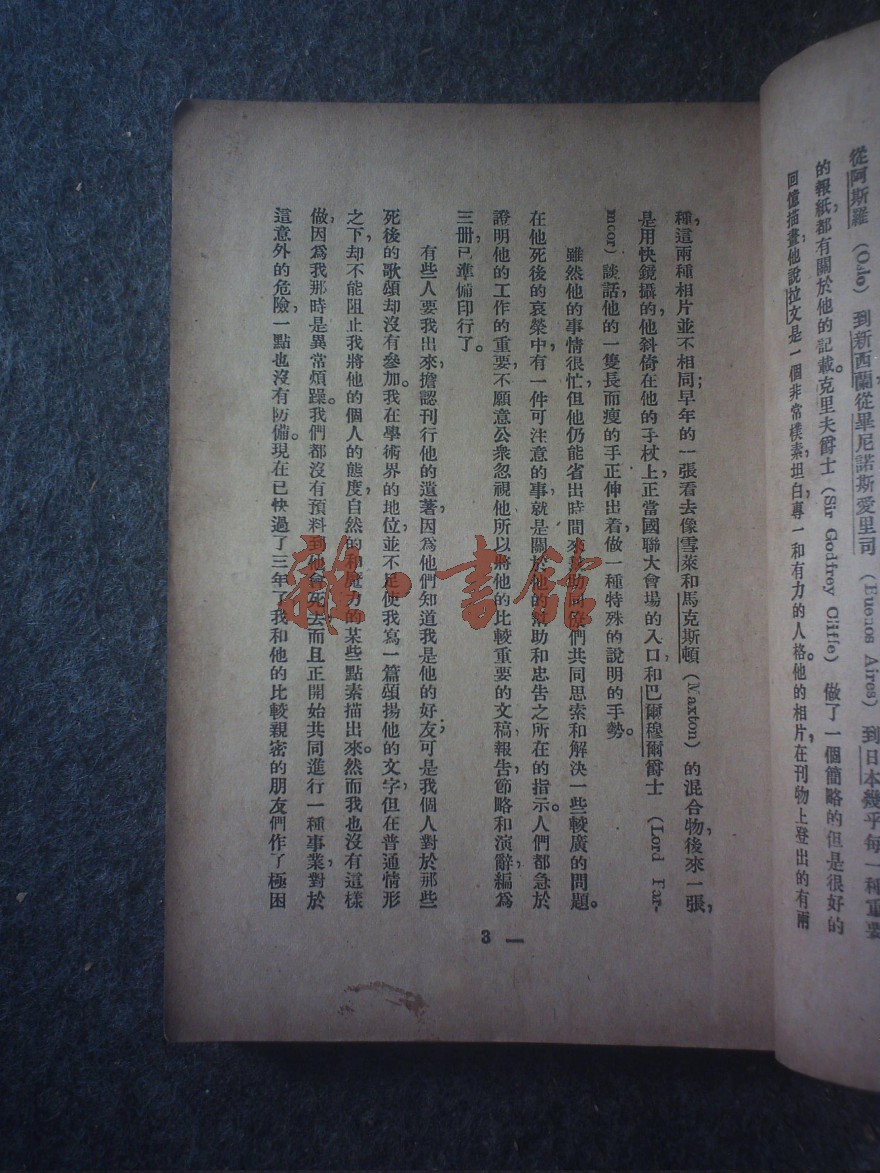 從阿斯羅 (Oslo) 到新西蘭，從畢尼諾斯愛里司 (Buenos Aires) 到日本幾乎每一種重要
的報紙都有關於他的記載。克里夫爵士 (Sir Godfroy Cliffe) 做了一個簡略的但是很好的
回憶描畫，他說拉文是一個非常樸素，坦白，專一和有力的人格。他的相片，在刊物上登出的有兩
種，這兩種相片並不相同；早年的一張看去像雪萊和馬克斯頓 (Maxton) 的混合物，後來一張，
是用快鏡攝的，他斜倚在他的手杖上，正當國聯大會場的入口，和巴爾穆爾爵士 (Lord Par-
mcor) 談話，他的一隻長而瘦的手正伸出着，做一種特殊的說明的手勢。
雖然他的事情很忙，但他仍能省出時間來助同僚們共同思索和解決一些較廣的問題。
在他死後的哀榮中，有一件可注意的事，就是關於他的幫助和忠告之所在的指示。人們都急於
證明他的工作的重要，不願意公衆忽視他，所以將他的比較重要的文稿，報告節略和演辭編爲
三册，已準備印行了。
有些人要我出來，擔認刊行他的遺著，因爲他們知道我是他的好友；可是我個人對於那些
死後的歌頌却沒有參加。我在學術界的地位，並不足使我寫一篇頌揚他的文字，但在普通情形
之下，却不能阻止我將他的個人的態度，自然的和魔力的某些點素描出來。然而我也沒有這樣
做，因爲我那時是異常煩躁。我們都沒有預料到他會死去，而且正開始共同進行一種事業，對於
這意外的危險，一點也沒有防備。現在已快過了三年了，我和他的比較親密的朋友們作了極困
3 —
雜·書館